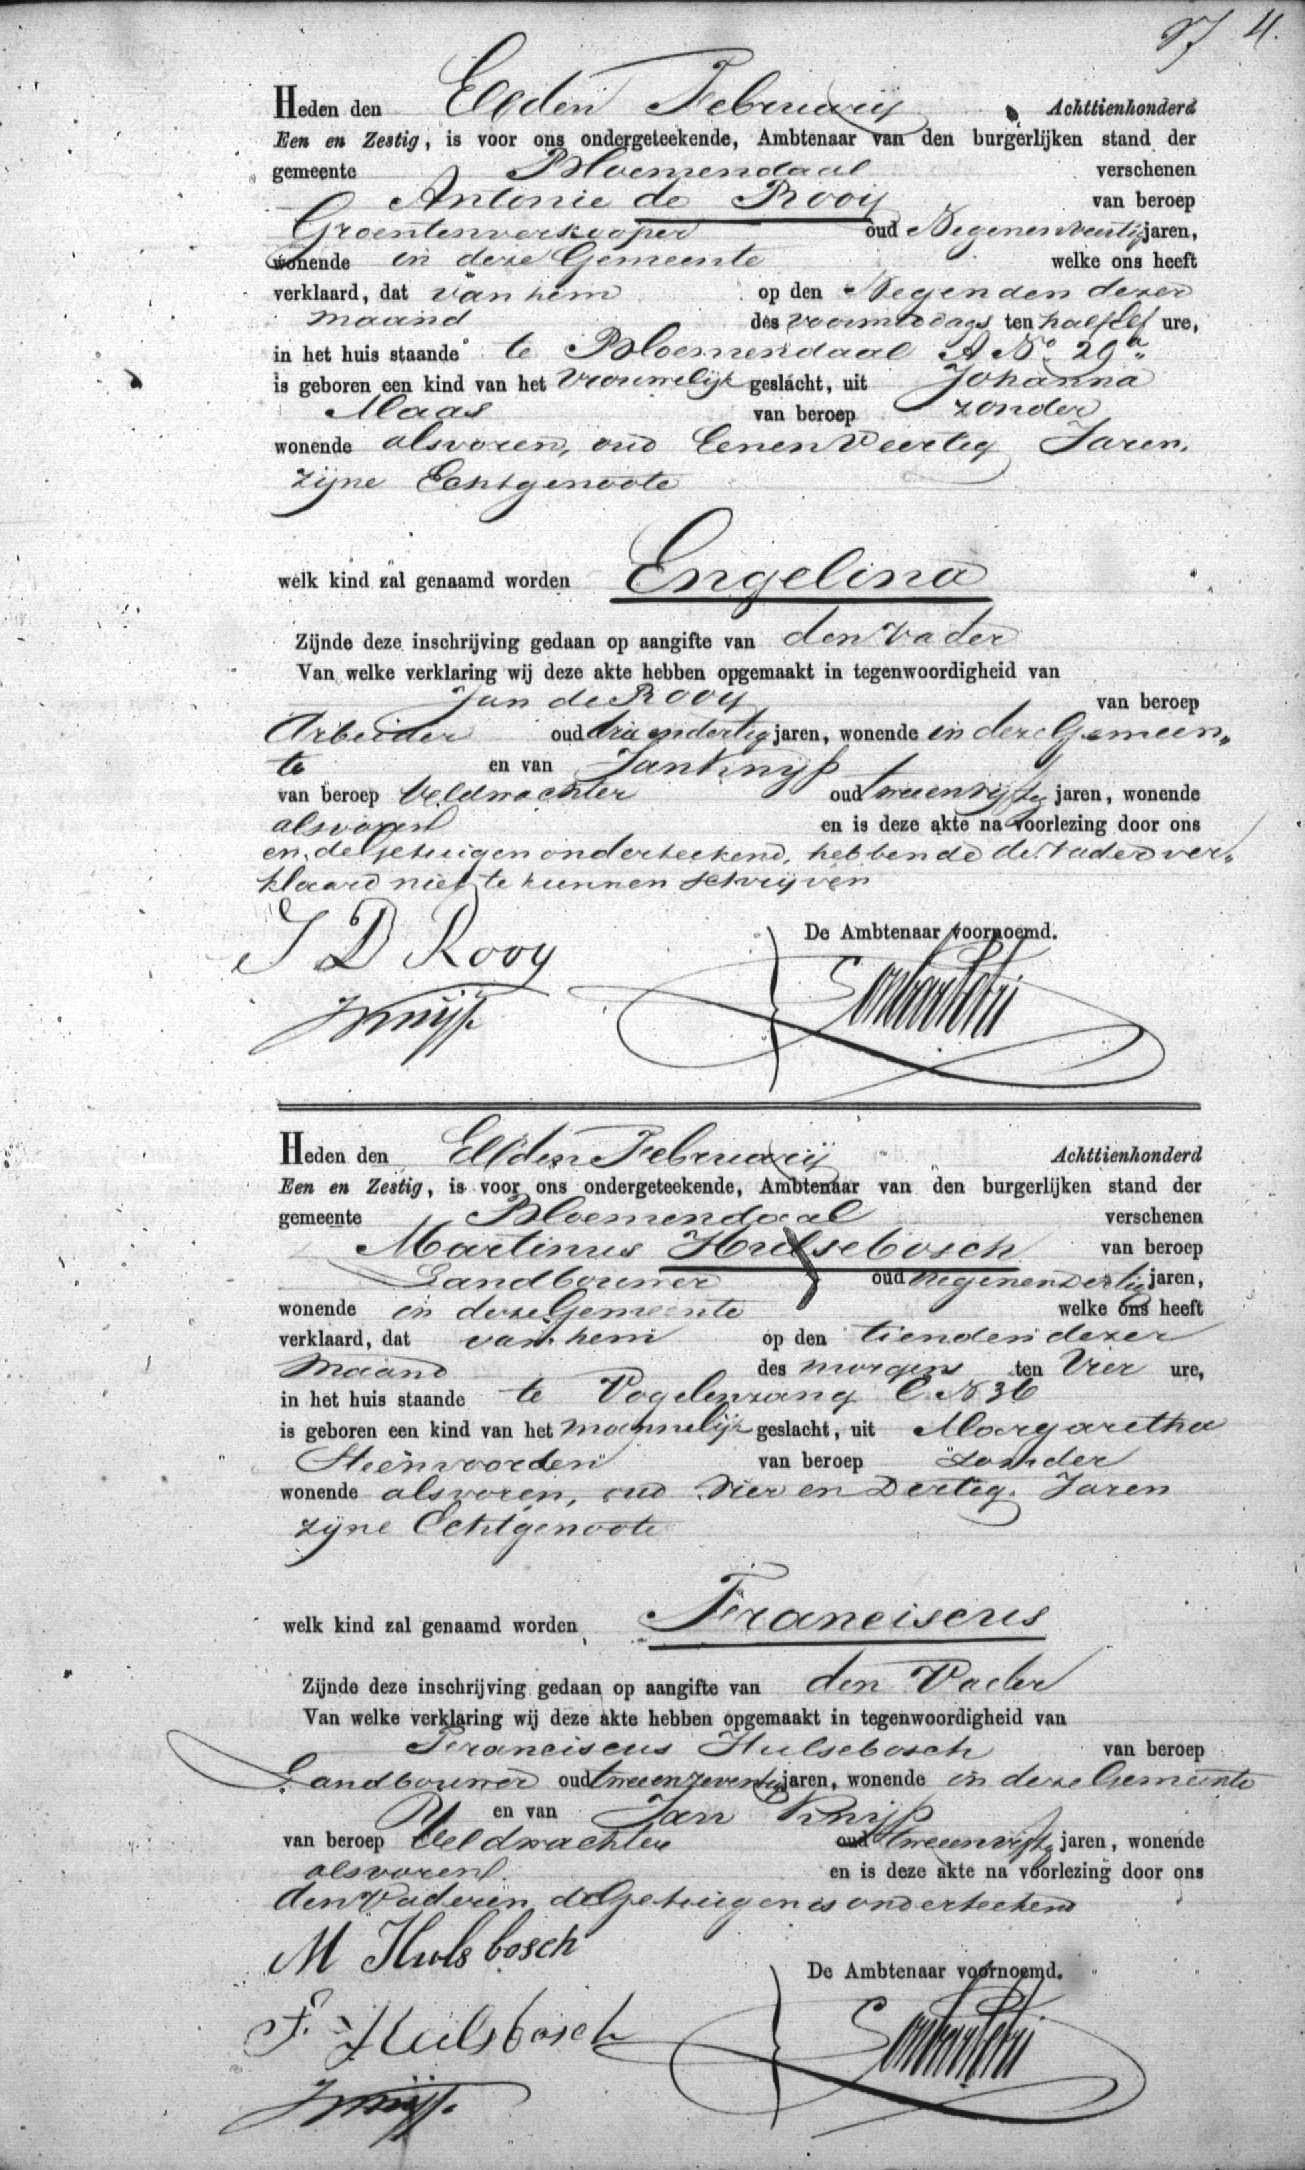 4.
Heden den Elfden Februarij Achttienhonderd
Een en Zestig, is voor ons ondergeteekende, Ambtenaar van den burgerlijken stand der
gemeente Bloemendaal verschenen
Antonie de Rooij van beroep
Groentenverkooper oud Negenenveertig jaren,
wonende in deze Gemeente welke ons heeft
verklaard, dat van hem op den Negenden dezer
maand des voormiddags ten half elf ure,
in het huis staande te Bloemendaal A No. 29a
is geboren een kind van het Vrouwelijk geslacht, uit Johanna
Maas van beroep zonder
wonende alsvoren, oud Eenen Veertig Jaren.
zijne Echtgenoote
welk kind zal genaamd worden Engelina
Zijnde deze inschrijving gedaan op aangifte van den Vader
Van welke verklaring wij deze akte hebben opgemaakt in tegenwoordigheid van
Jan de Rooij van beroep
Arbeider oud drie endertig jaren, wonende in deze Gemeen„
te en van Jan Knijp
van beroep Veldwachter oud tweenvijftig jaren, wonende
alsvoren en is deze akte na voorlezing door ons
en de getuigen onderteekend, hebbende de Vader ver„
klaard niet te kunnen schrijven
J D Rooy De Ambtenaar voornoemd.
J Knijp
Heden den Elfden Februarij Achttienhonderd
Een en Zestig, is voor ons ondergeteekende, Ambtenaar van den burgerlijken stand der
gemeente Bloemendaal verschenen
Martinus Hulsebosch van beroep
Landbouwer oud Negenendertig jaren,
wonende in deze Gemeente welke ons heeft
verklaard, dat van hem op den tienden dezer
Maand des morgens ten Vier ure,
in het huis staande te Vogelenzang C N 36
is geboren een kind van het mannelijk geslacht, uit Margaretha
Steenvoorden van beroep zonder
wonende alsvoren, oud Vier en Dertig. Jaren
zijne Echtgenoote
welk kind zal genaamd worden Franciscus
Zijnde deze inschrijving gedaan op aangifte van den Vader
Van welke verklaring wij deze akte hebben opgemaakt in tegenwoordigheid van
Franciscus Hulsebosch van beroep
Landbouwer oud tweenzeventig jaren, wonende in deze Gemeente
en van Jan Knijp
van beroep Veldwachter oud tweenvijftig jaren, wonende
alsvoren en is deze akte na voorlezing door ons
den Vader en de Getuigen is onderteekend
M Hulsbosch
De Ambtenaar voornoemd.
F. Hulsbosch
J Knijp.